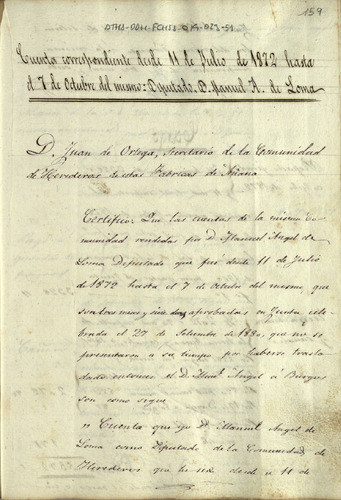 159
Cuenta correspondiente desde 11 de Julio de 1872 hasta
el 7 de Octubre del mismo = Diputado D. Manuel A. de Loma
D. Juan de Ortega, Secretario de la Comunidad
de Herederos de estas Fabricas de Añana
Certifico: Que las cuentas de la misma Co-
munidad rendida por D. Manuel Angel de
Loma Diputado que fue desde 11 de Julio
de 1872 hasta el 7 de Octubre del mismo, que
son las aprobadas en Junta cele-
brada el 27 de Setiembre de 1880, que no se
presentaron a su tiempo por haberse trasla-
dado entonces el D. Man.l Angel á Burgos
son como sigue
" Cuenta que yo D. Manuel Angel de
Loma como Diputado de la Comunidad de
Herederos que he sido desde el 11 de